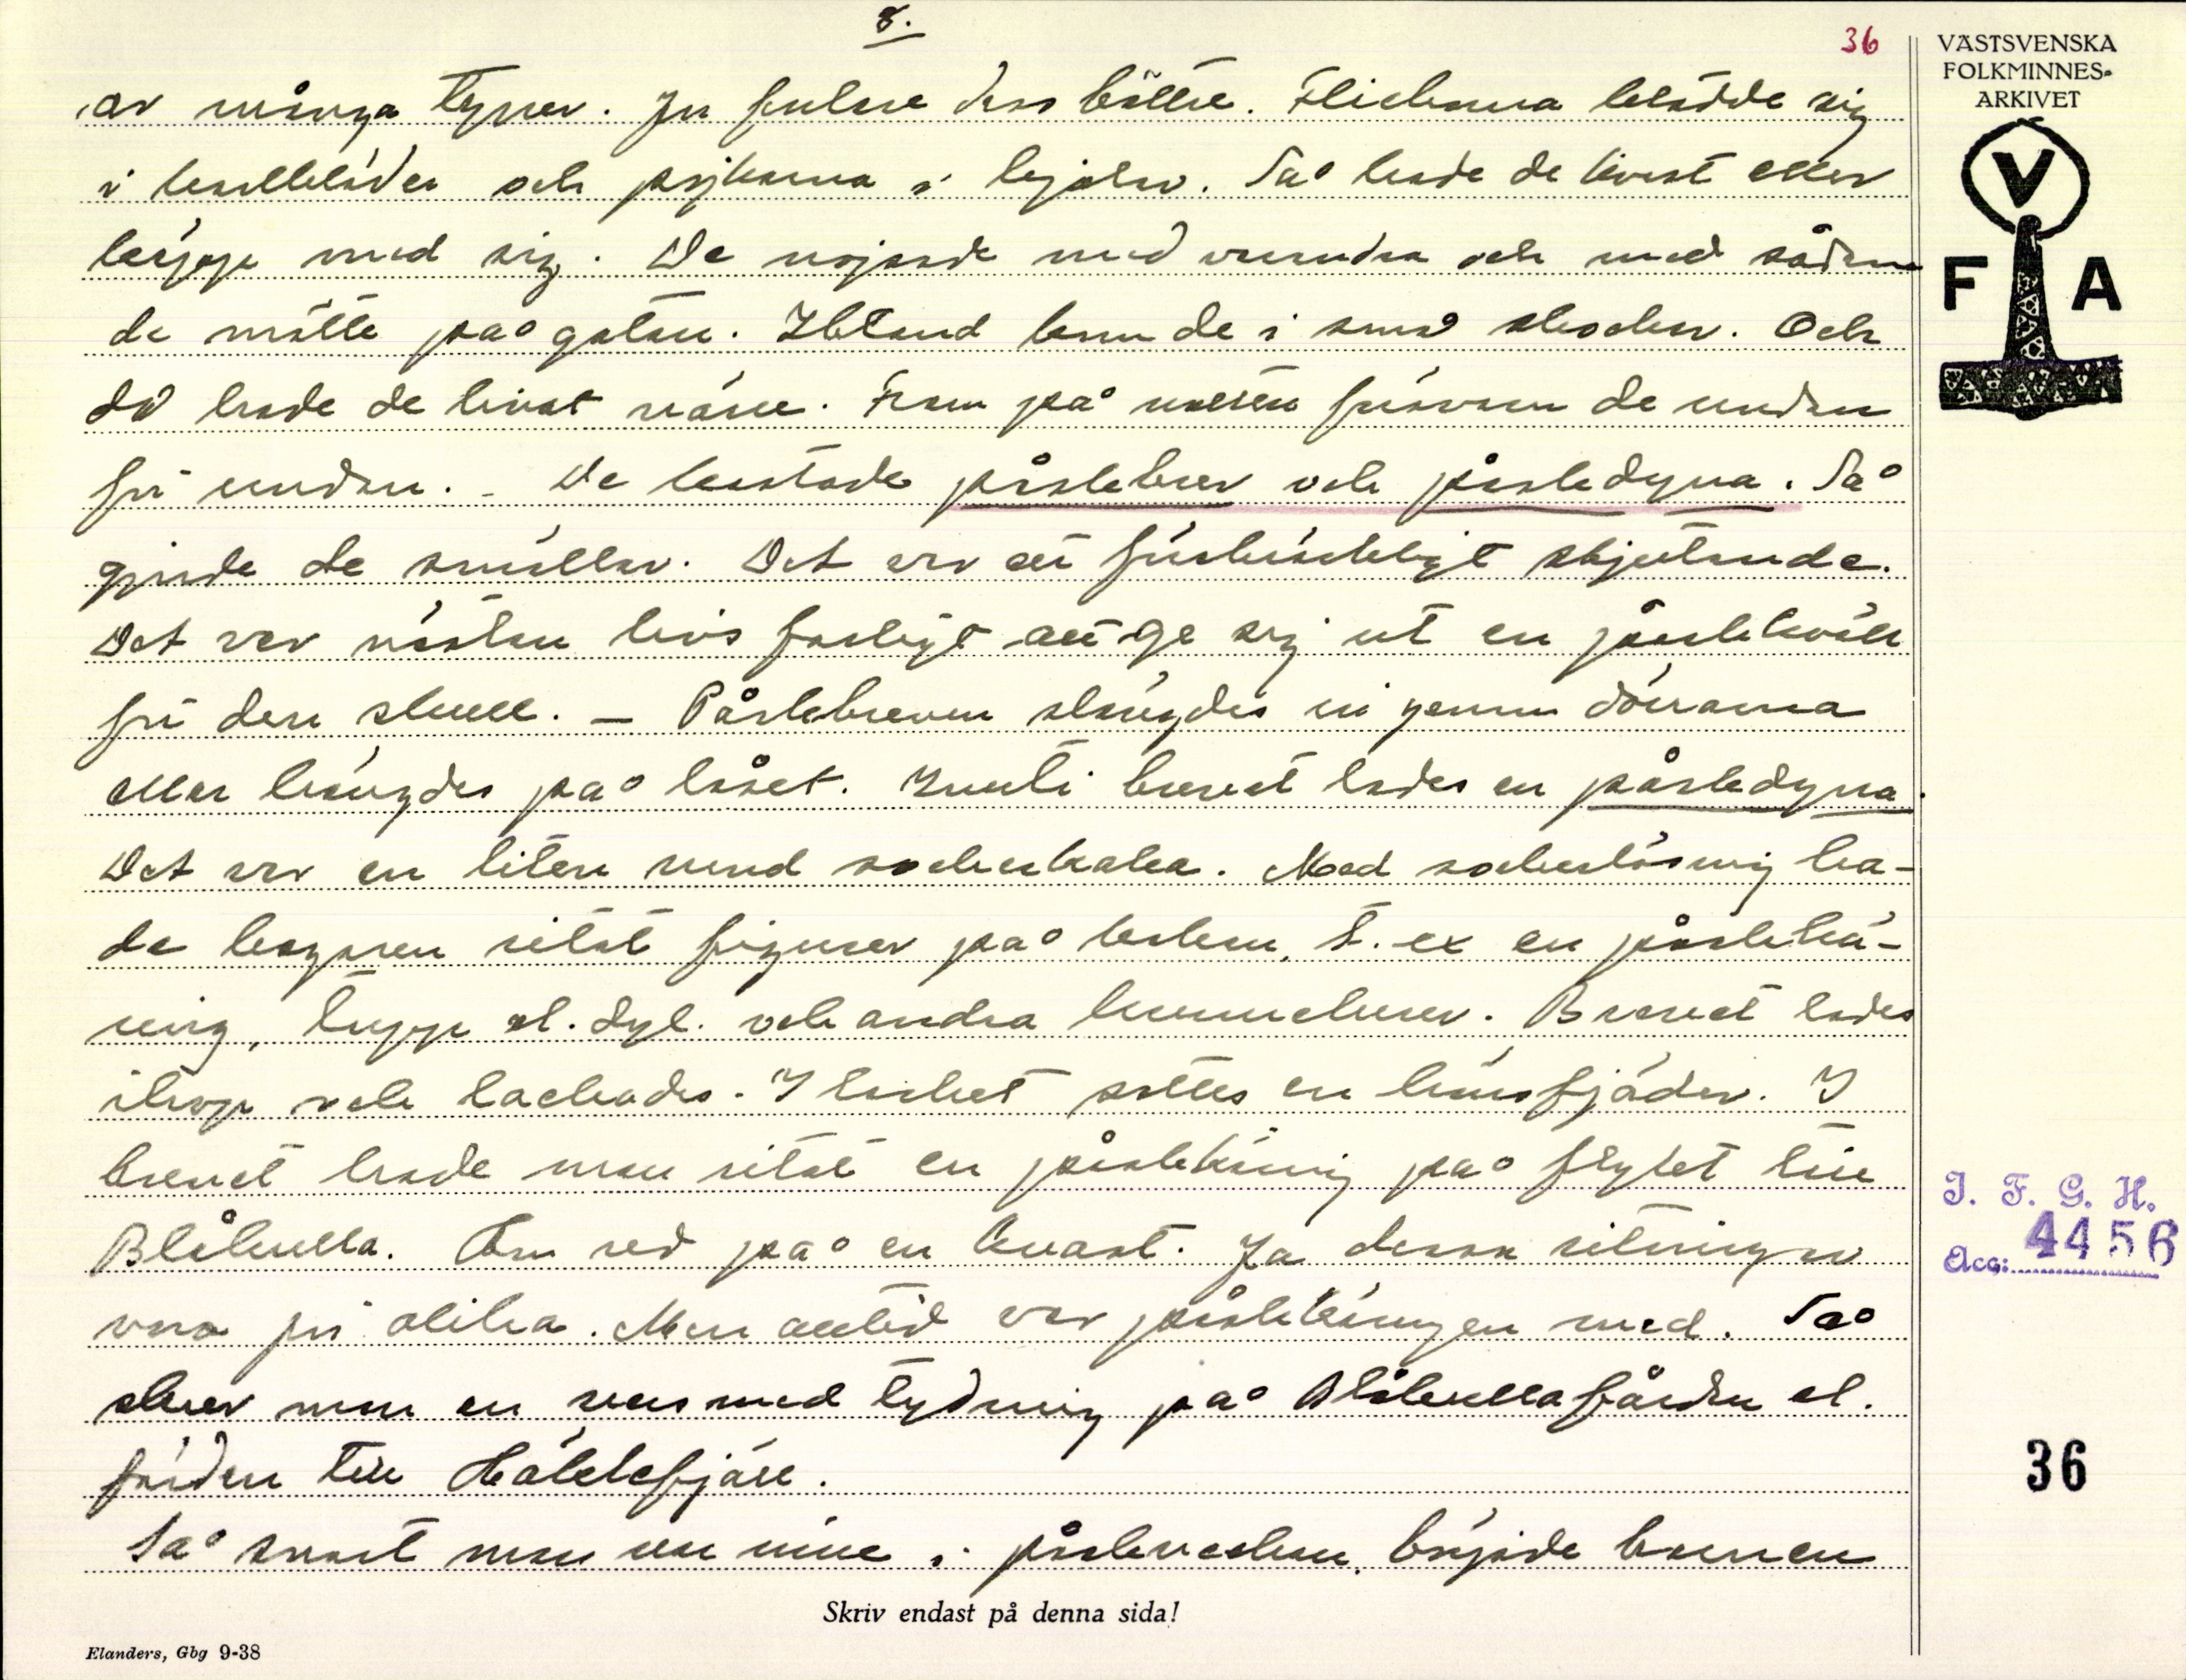 8.
36
VÄSTSVENSKA
FOLKMINNES-
ARKIVET
V
F A
av många typer. Ju fulare dess bättre. Flickorna klädde sig
i karlkläder och pojkarna i kjolar. Så hade de kvast eller
käpp med sig. De nojsade med varandra och med sådana
de mötte på gatan. Ibland kom de i små skockar. Och
då hade de livat värre. Fram på natten försvann de undan
för undan. - De kastade påskbrev och påskdyna. Så
gjorde de smällar. Det var ett förskräckligt skjutande.
Det var nästan livsfarligt att ge sig ut en påskkväll
för den skull. - Påskbreven slängdes in genom dörrarna
eller hängdes på låset. Inuti brevet lades en påskdyna.
Det var en liten rund sockerkaka. Med sockerlösning ha-
de bagaren ritat figurer på kakan, t. ex en påskkä-
ring, tupp el. dyl. och andra krumelurer. Brevet lades
ihop och lackades. I lacket sattes en hönsfjäder. I
brevet hade man ritat en påskkäring på flykt till
Blåkulla. Hon red på en kvast. Ja dessa ritningar
voro för olika. Men alltid var påskkäringen med. Så
skrev man en vers med tydning på Blåkullafärden el.
färden till Häcklefjäll.
Så snart man var inne i påskveckan, började barnen
Skriv endast på denna sida!
Elanders, Gbg 9-38
I. F. G. H.
Acc: 4456
36